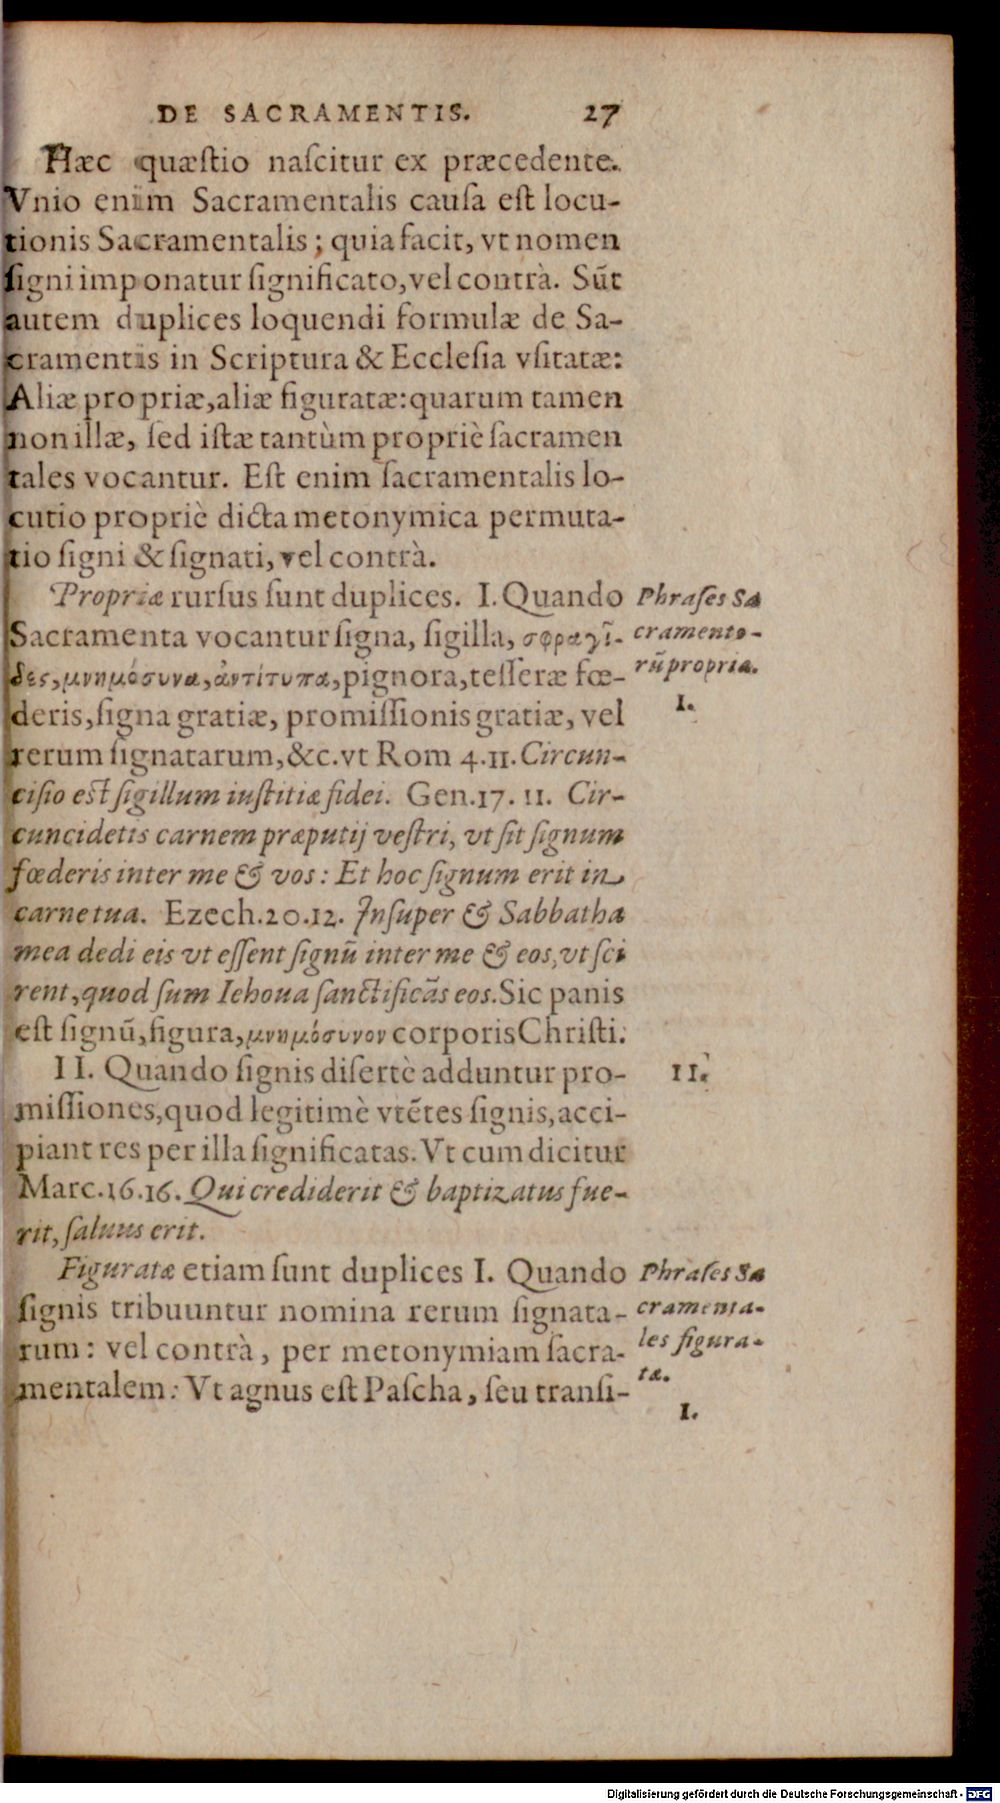 DE SACRAMENTIS. 27
Hæc quæſtio naſcitur ex præcedente.
Vnio enim Sacramentalis cauſa eſt locu-
tionis Sacramentalis; quia facit, vt nomen
ſigni imponatur ſignificato, vel contrà. Sũt
autem duplices loquendi formulæ de Sa-
cramentis in Scriptura & Eccleſia vſitatæ:
Aliæ propriæ, aliæ figuratæ: quarum tamen
non illæ, ſed iſtæ tantùm propriè ſacramen
tales vocantur. Eſt enim ſacramentalis lo-
cutio propriè dicta metonymica permuta-
tio ſigni & ſignati, vel contrà.
Propriæ rurſus ſunt duplices. I. Quando
Phraſes Sa
Sacramenta vocantur ſigna, ſigilla, σφραγῖ-
cramento-
δες, μνημόσυνα, ἀντίτυπα, pignora, teſſeræ fœ-
rũ propriæ.
deris, ſigna gratiæ, promiſſionis gratiæ, vel
I.
rerum ſignatarum, &c. vt Rom 4.11. Circun-
ciſio eſt ſigillum iuſtitiæ fidei. Gen. 17. 11. Cir-
cuncidetis carnem præputij veſtri, vt ſit ſignum
fœderis inter me & vos: Et hoc ſignum erit in
carne tua. Ezech. 20.12. Inſuper & Sabbatha
mea dedi eis vt eſſent ſignũ inter me & eos, vt ſci
rent, quod ſum Iehoua ſanctificãs eos. Sic panis
eſt ſignũ, figura, μνημόσυνον corporis Chriſti.
II. Quando ſignis diſertè adduntur pro-
II.
miſſiones, quod legitimè vtẽtes ſignis, acci-
piant res per illa ſignificatas. Vt cum dicitur
Marc. 16.16. Qui crediderit & baptizatus fue-
rit, ſaluus erit.
Figuratæ etiam ſunt duplices I. Quando
Phraſes Sa
ſignis tribuuntur nomina rerum ſignata-
cramenta-
rum: vel contrà, per metonymiam ſacra-
les figura-
mentalem: Vt agnus eſt Paſcha, ſeu tranſi-
tæ.
I.
Digitalisierung gefördert durch die Deutsche Forschungsgemeinschaft - DFG